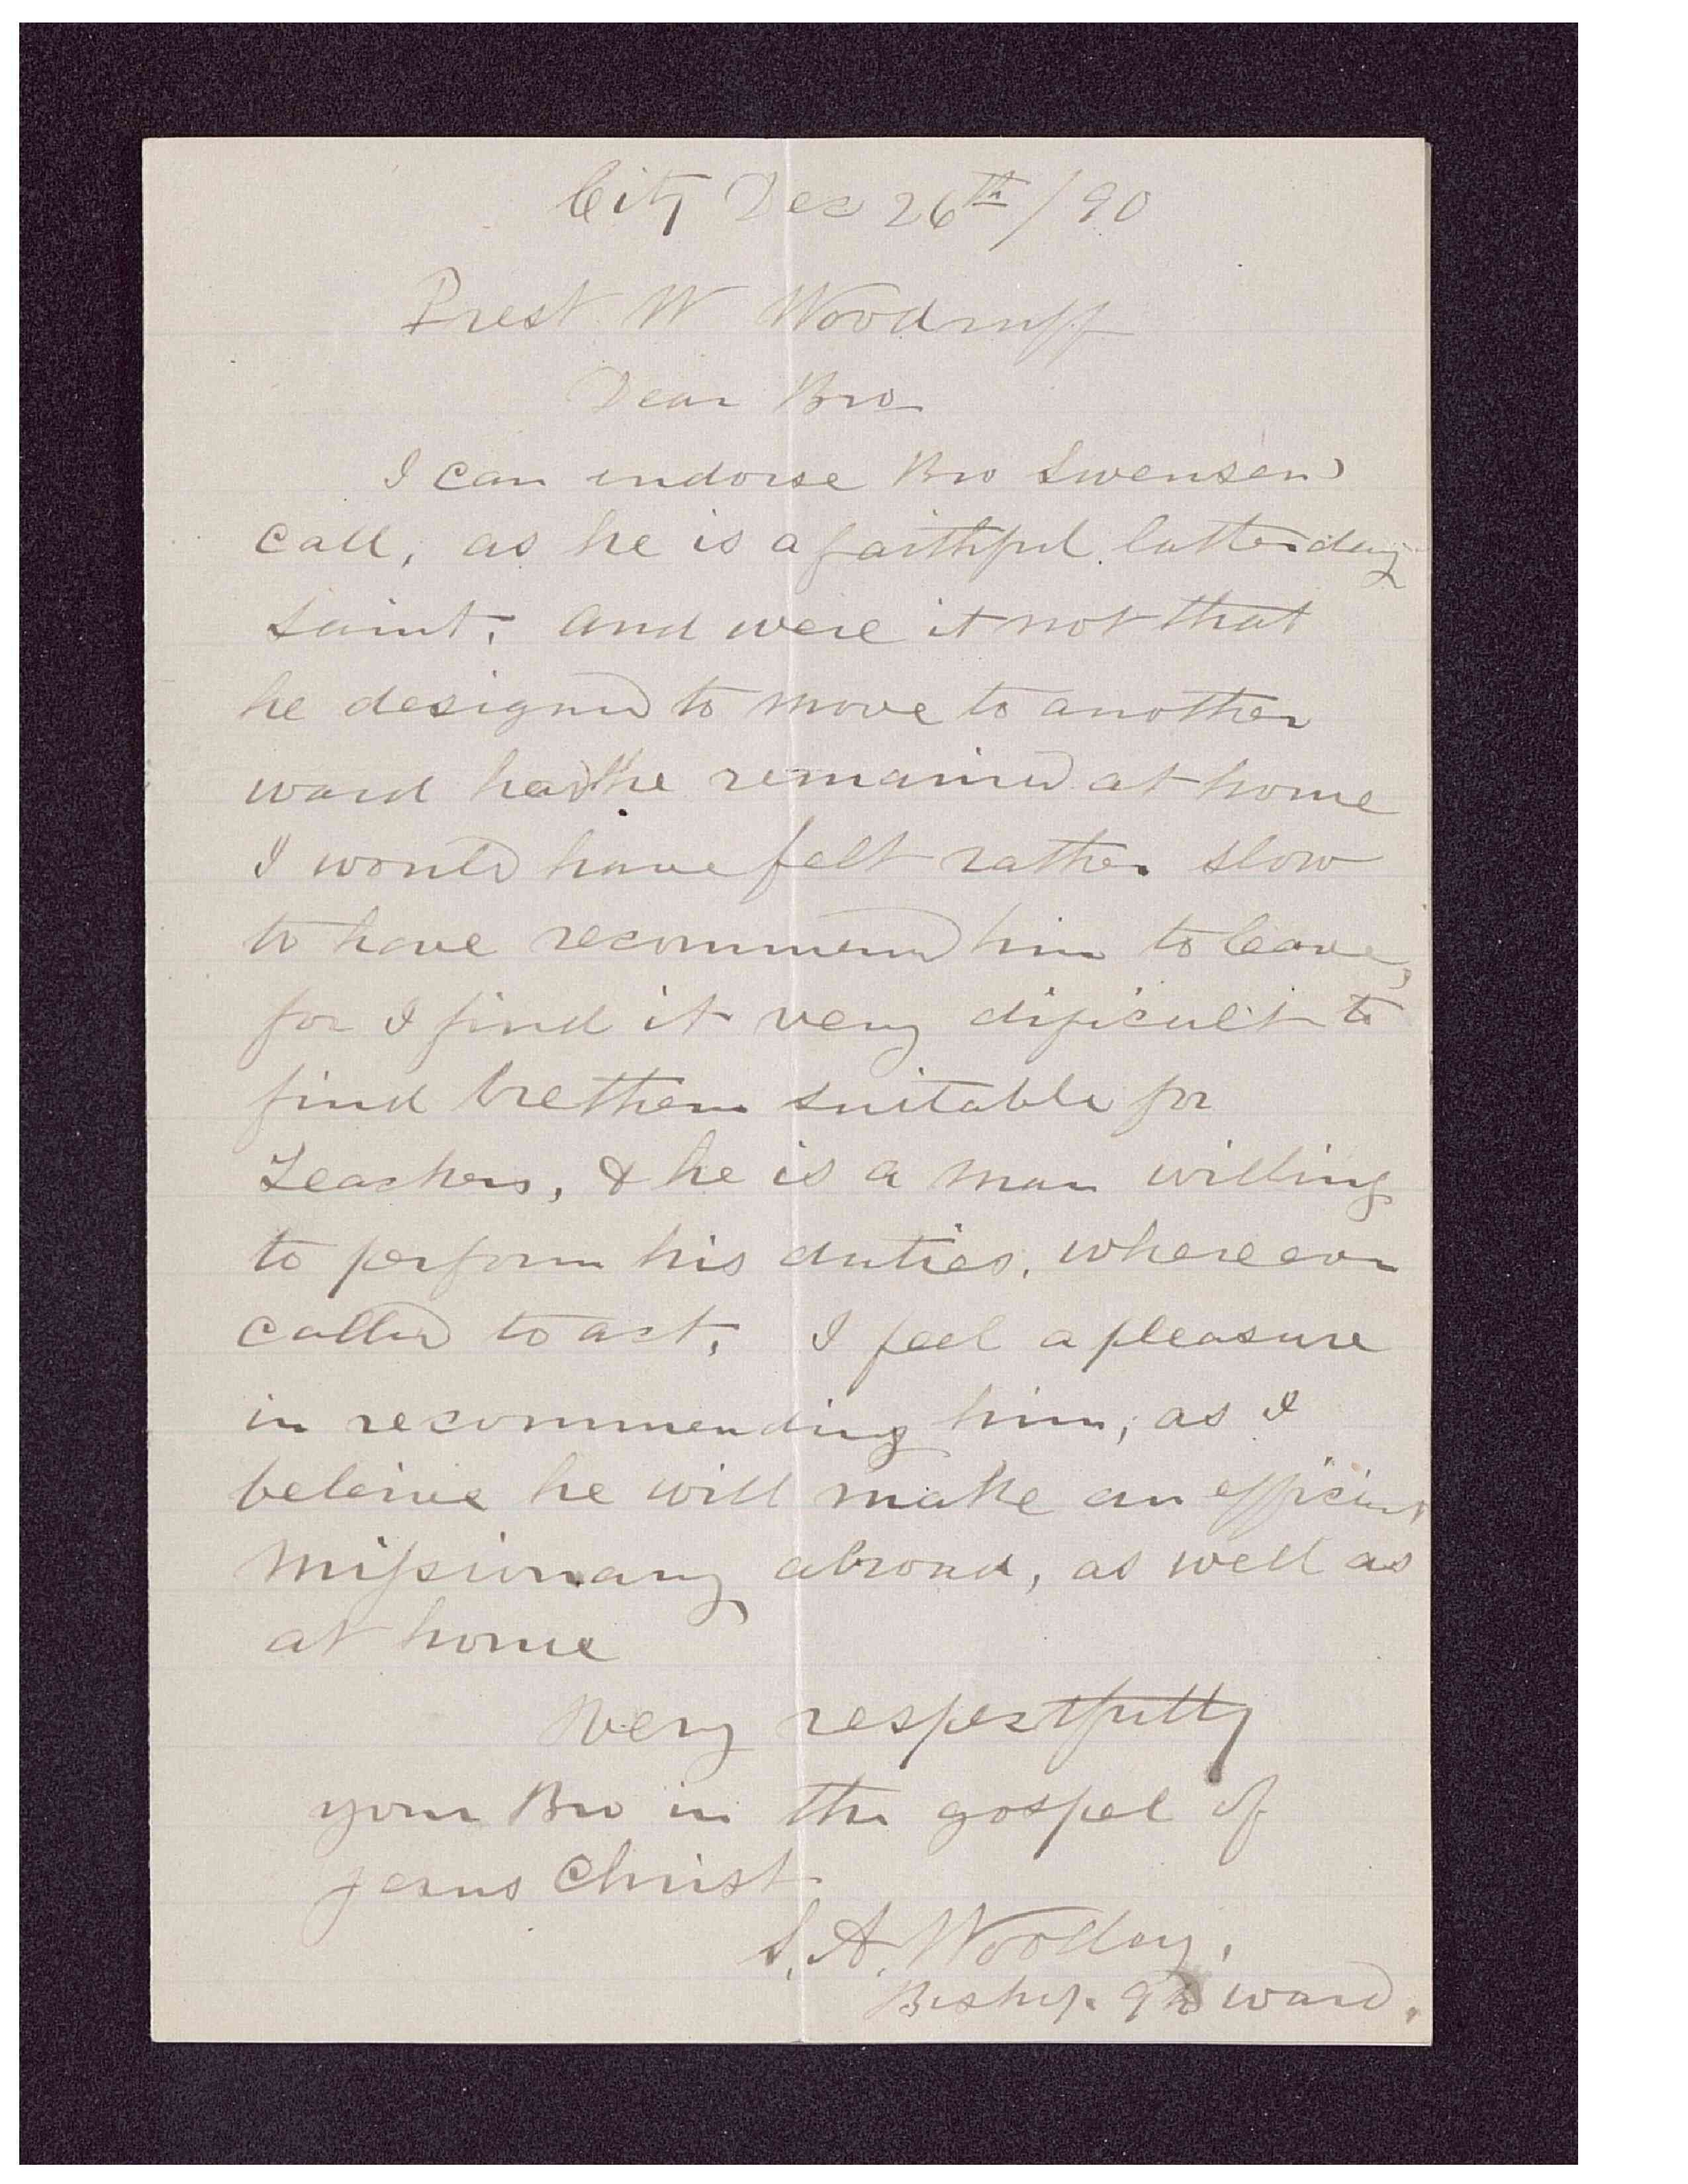 City Dec 26th/90
Prest W Woodruff
Dear Bro
I can endorse Bro Swensens
call, as he is a faithful latterday
saint, and were it not that
he designed to move to another
ward had he remained at home
I would have felt rather slow
to have recommend him to leave,
for I find it very dificult to
find brethern suitable for
Teachers, & he is a man willing
to perform his duties, whereever
called to act, I feel a pleasure
in recommending him, as I
beleive he will make an efficient
missionary abroad, as well as
at home
Very respectfully
your Bro in the gospel of
Jesus Christ
S. A. Woolley.
Bishop. 9th ward.